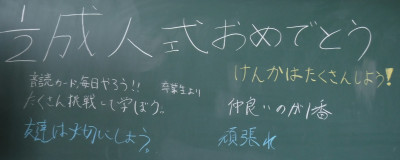 1/2成人式おめでとう
音読カード毎日やろう!!
卒業生より
たくさん挑戦して学ぼう。
友達は大切にしよう。
けんかはたくさんしよう!
仲良いのが1番
頑張れ